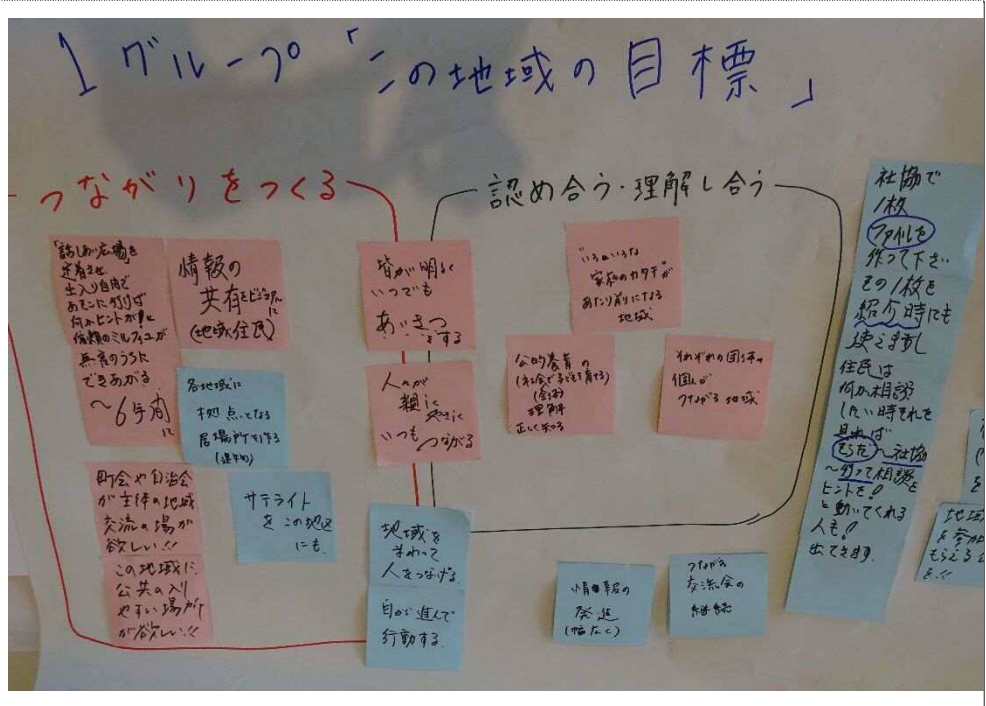 1グループ「この地域の目標」
つながりをつくる
認め合う・理解し合う
「話しあい広場を
定着させ
出入り自由で
あそこに行けば
何かヒントが!と
信頼のミルフィユが
無意のうちに
できあがる
〜6年間に
情報の
共有をビジュアルに
(地域住民)
各地域に
拠点となる
居場所を作る
町会や自治会
が主体の地域
交流の場が
欲しい!!
この地域に
公共の入り
やすい場所
が欲しい!!
サテライト
をこの地区
にも.
皆が明るく
いつでも
あいさつ
をする
人々が
親しく
いつもつながる
地域を
まわって
人をつなげる.
自から進んで
行動する.
"いろいろな
家族のカタチ"が
あたり前りになる
地域
公的養育の
(社会で子どもを育てる)
理解
正しく知る
それぞれの団体や
個人が
つながる地域
情報の
発進
(幅広く)
つながる
交流会の
継続
社協で
1枚
ファイルを
作って下さい
その1枚を
紹介時にも
使えますし
住民は
何か相談
したい時それを
見れば
そうだ〜社協
〜行って相談を
ヒントを!
と動いてくれる
人も!
出てきます.
地域
を参加
もらえる
を!!